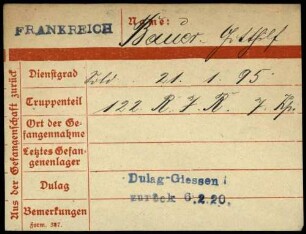 FRANKREICH Name: Bauer Gotthilf
Aus der Gefangenschaft zurück
Dienstgrad Sold. 21. 1. 95.
Truppenteil 122. R. J. R. 7. Kp.
Ort der Gefangennahme
Letztes Gefangenenlager
Dulag Dulag-Giessen
Bemerkungen zurück 6.2.20.
Form. 787.